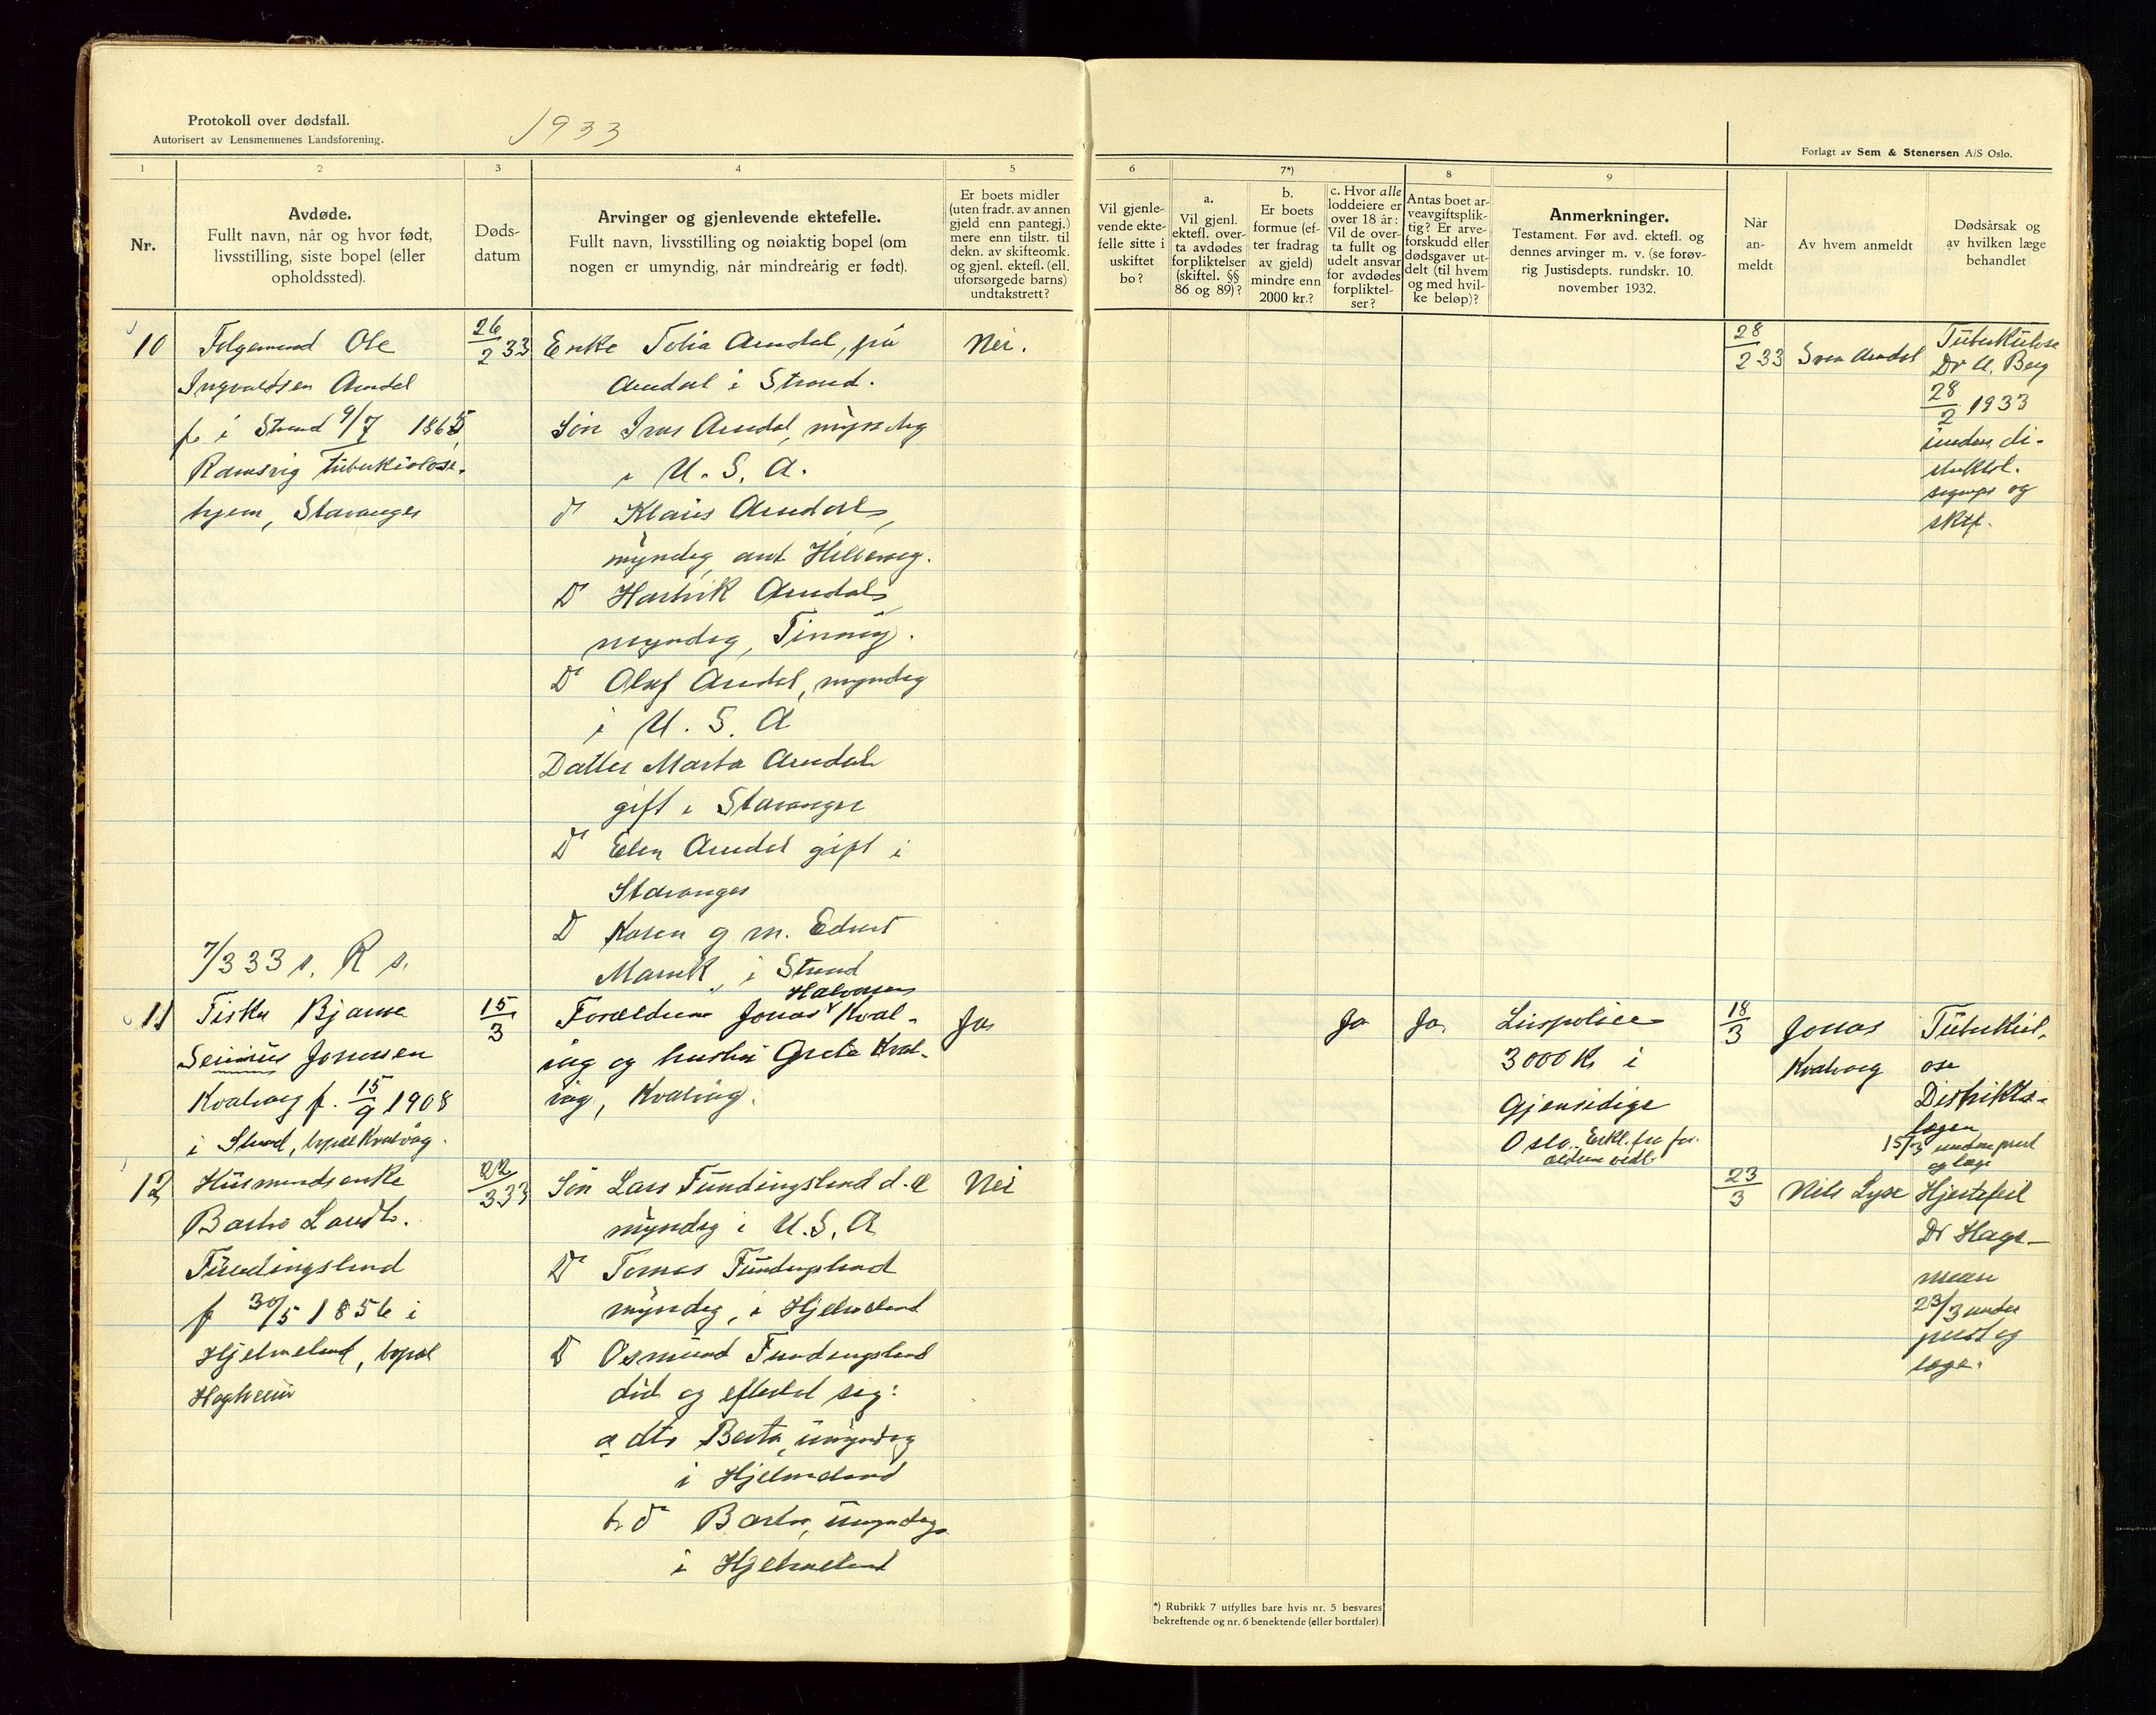 Protokoll over dødsfall.
Autorisert av Lensmennenes Landsforening.
1933
Forlagt av Sem & Stenersen A/S Oslo.
1
2
3
4
5
6
7*)
8
9
Nr.
Avdøde.
Fullt navn, når og hvor født,
livsstilling, siste bopel (eller
opholdssted).
Døds-
datum
Arvinger og gjenlevende ektefelle.
Fullt navn, livsstilling og nøiaktig bopel (om
nogen er umyndig, når mindreårig er født).
Er boets midler
(uten fradr. av annen
gjeld enn pantegj.)
mere enn tilstr. til
dekn. av skifteomk.
og gjenl. ektefl. (ell.
uforsørgede barns)
undtakstrett?
Vil gjenle-
vende ekte-
felle sitte i
uskiftet
bo?
a.
Vil gjenl.
ektefl. over-
ta avdødes
forpliktelser
(skiftel. §§
86 og 89)?
b.
Er boets
formue (ef-
ter fradrag
av gjeld)
mindre enn
2000 kr.?
c. Hvor alle
loddeiere er
over 18 år:
Vil de over-
ta fullt og
udelt ansvar
for avdødes
forpliktel-
ser?
Antas boet ar-
veavgiftsplik-
tig? Er arve-
forskudd eller
dødsgaver ut-
delt (til hvem
og med hvil-
ke beløp)?
Anmerkninger.
Testament. Før avd. ektefl. og
dennes arvinger m. v. (se forøv-
rig Justisdepts. rundskr. 10.
november 1932.
Når
an-
meldt
Av hvem anmeldt
Dødsårsak og
av hvilken læge
behandlet
10
Ole
Ingvaldsen Arndal
f. i Strand 9/7 1865
Ramsvig tuberkulose-
hjem, Stavanger
7/3 33 s. R s.
26/2 33
Enke Tolia Arndal, på
Arndal i Strand.
Søn Ivar Arndal, myndig
i U. S. A.
d° Klaus Arndal,
myndig, ant Hillevåg.
D° Hartvik Arndal,
myndig,
D° Olaf Arndal, myndig
i U. S. A
Datter Marta Arndal
gift i Stavanger
D° Elen Arndal gift i
Stavanger
D° Karen g m. Edvart
i Strand
Nei.
28/2 33
Sven Arndal
Tuberkulose
Dr A. Berg
28/2 1933
under di-
og
skf.
11
Fisker Bjarne
Severius Jonassen
Kvalvaag f. 15/9 1908
i Strand, bopæl Kvalvåg.
15/3
Halvorsen
Forældrene Jonas Kval-
våg og hustru Grete Kval-
våg, Kvalvåg.
Ja
Ja
Ja.
Livspolice
3000 Kr i
Gjensidige
Oslo. Erkl. fra for-
ældrene vedl.
18/3
Jonas
Kvalvaag
Tuberkul-
ose
Distrikts-
lægen
15/3 under prest
og læge
12
Husmandsenke
Bertha
Fundingsland
f 30/5 1856 i
Hjelmeland, bopæl
Høgheim
22/3 33
Søn Lars Fundingsland d. æ
myndig i U. S. A
D° Tomas Fundingsland
myndig, i Hjelmeland
D° Osmund Fundingsland
død og efterlot seg:
a dtr Berta, umyndig
i Hjelmeland
b. d° Bertha, umyndig
i Hjelmeland
Nei
23/3
Nils Lyse
Hjertefeil
Dr Hage-
mann
23/3 under
prest og
læge.
*) Rubrikk 7 utfylles bare hvis nr. 5 besvares
bekreftende og nr. 6 benektende (eller bortfaler).